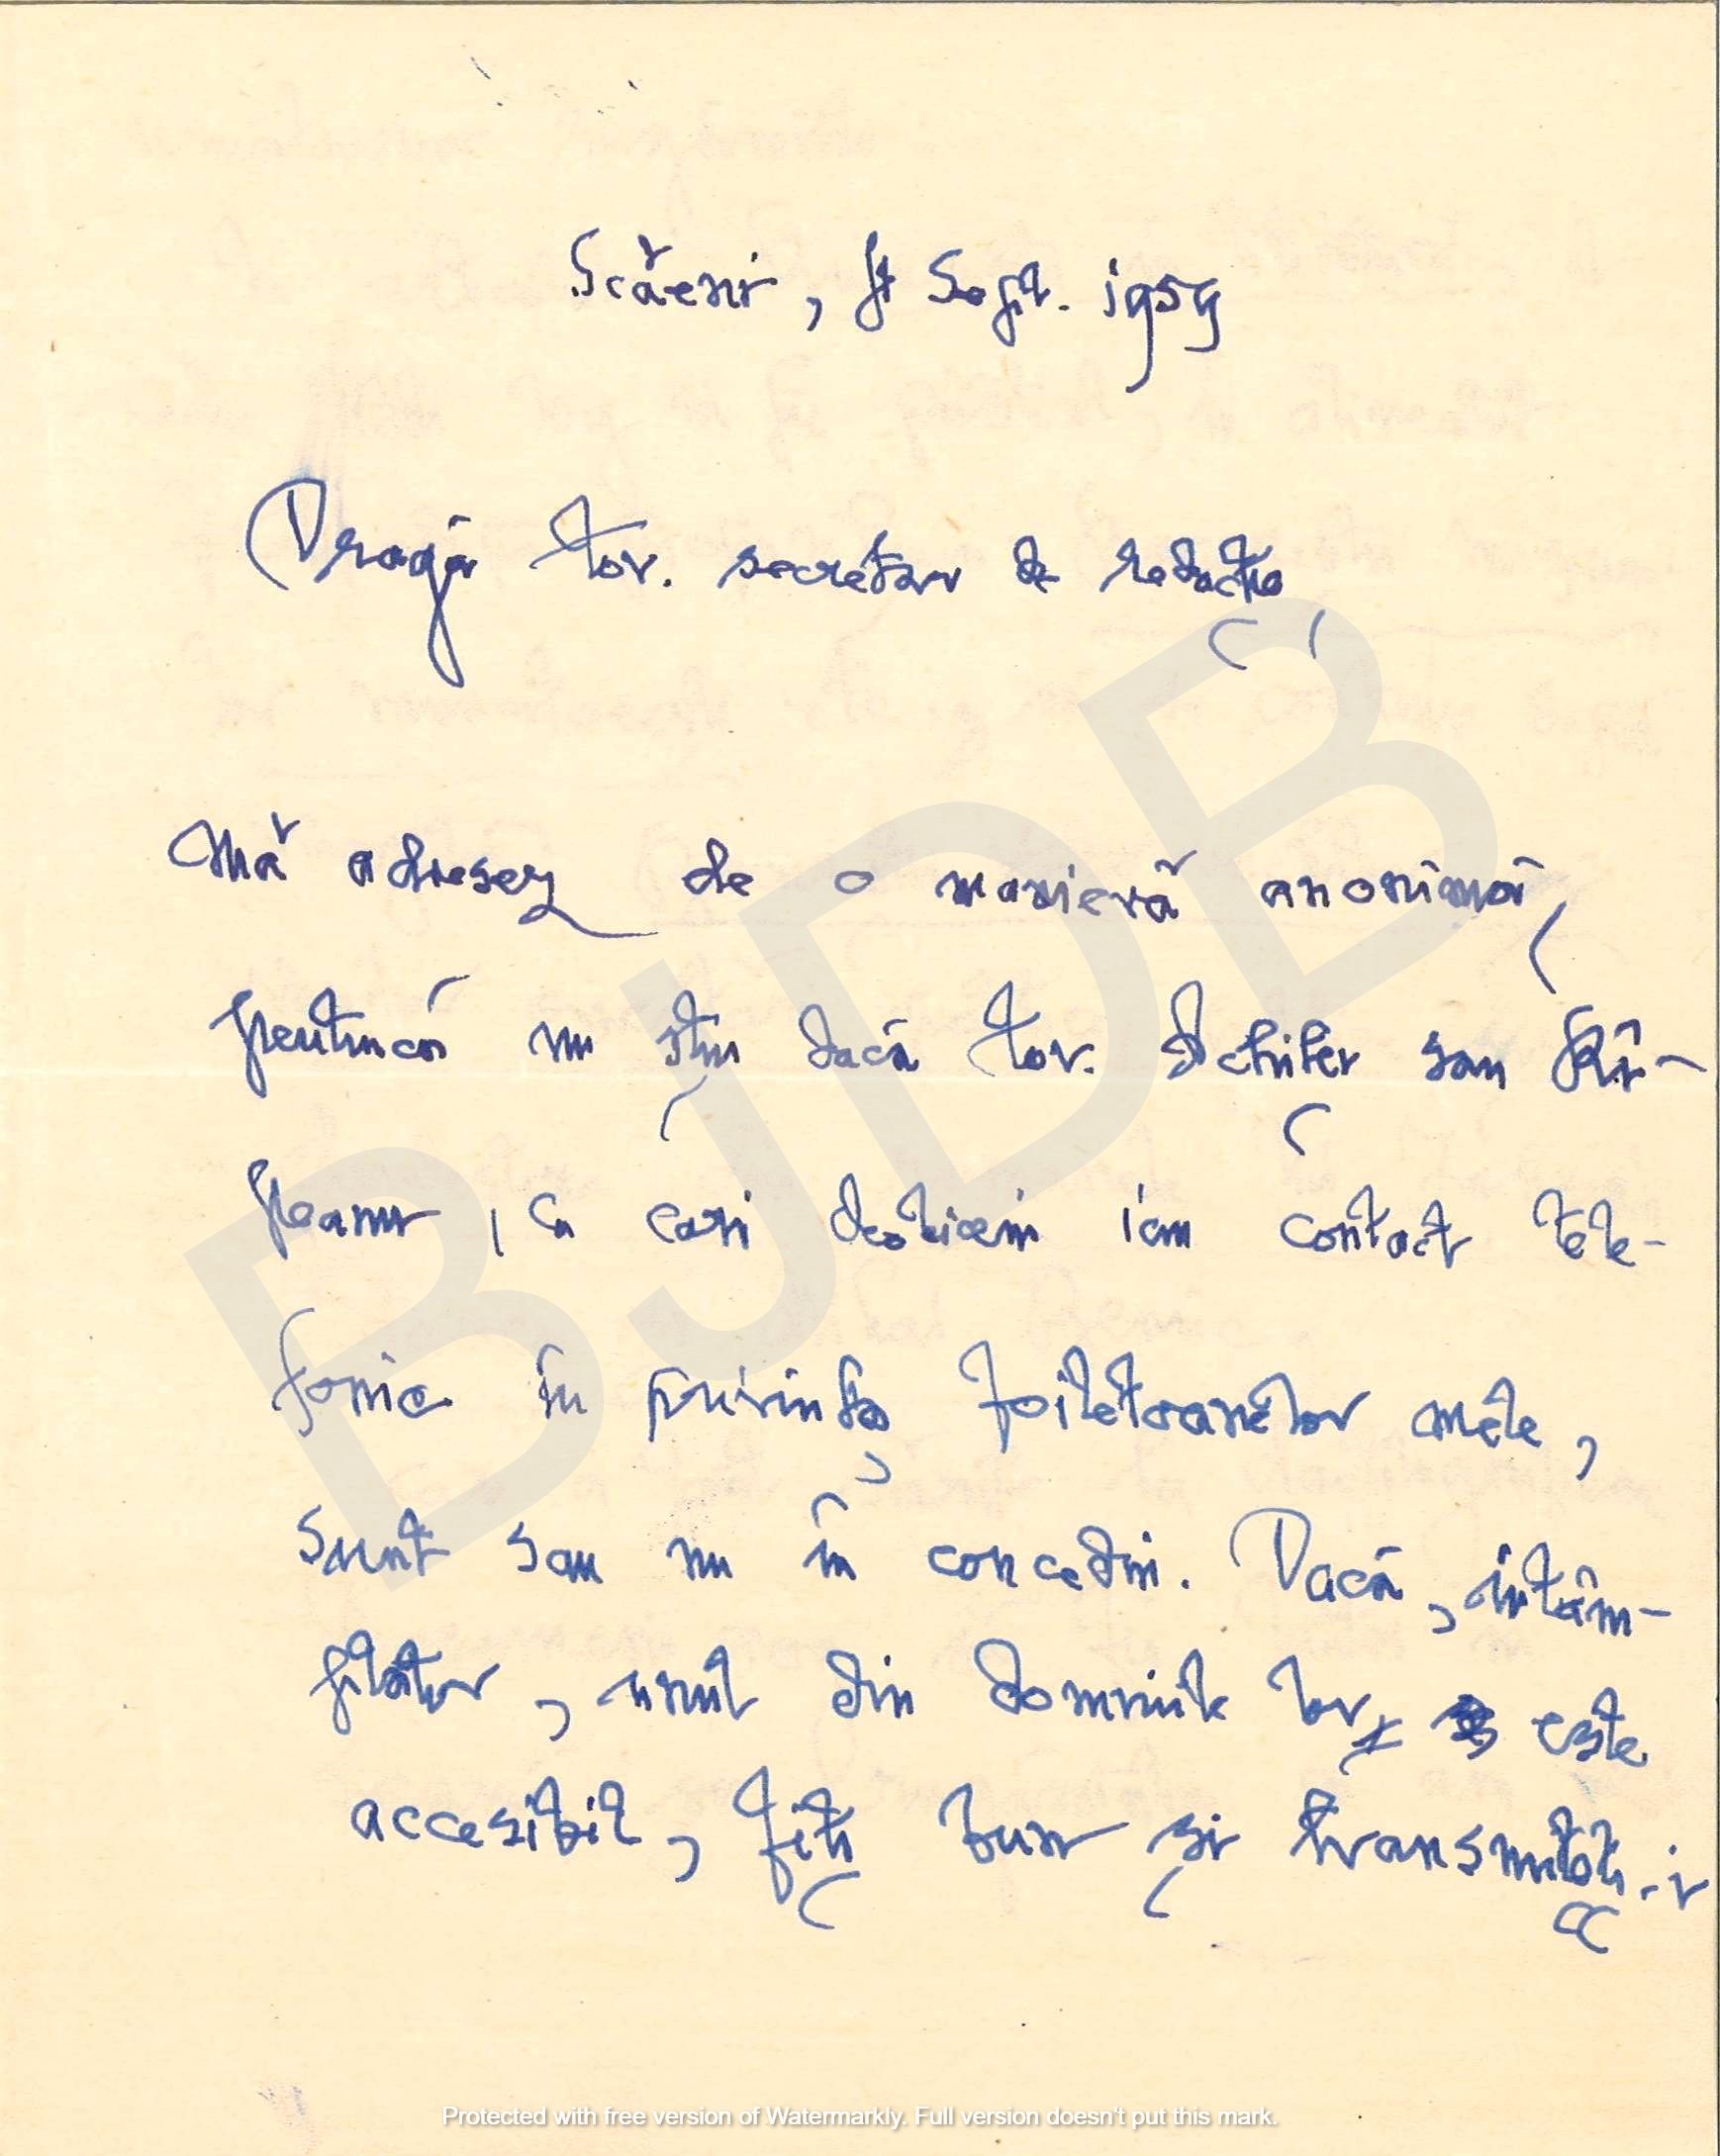 Scăeni, 8 Sept. 1959
Dragă tov. secretar de redacție,
Mă adresez de o manieră anonimă,
pentrucă nu știu dacă tov. sau Rî-
peanu, cu cari deobicem iau contact tele-
fonic în privința foiletoanelor mele,
sunt sau nu în concediu. Dacă, întâm-
plător, unul din domniile lor, este
accesibil, fiți bun și transmiteți-i
BJDB
Protected with free version of Watermarkly. Full version doesn't put this mark.